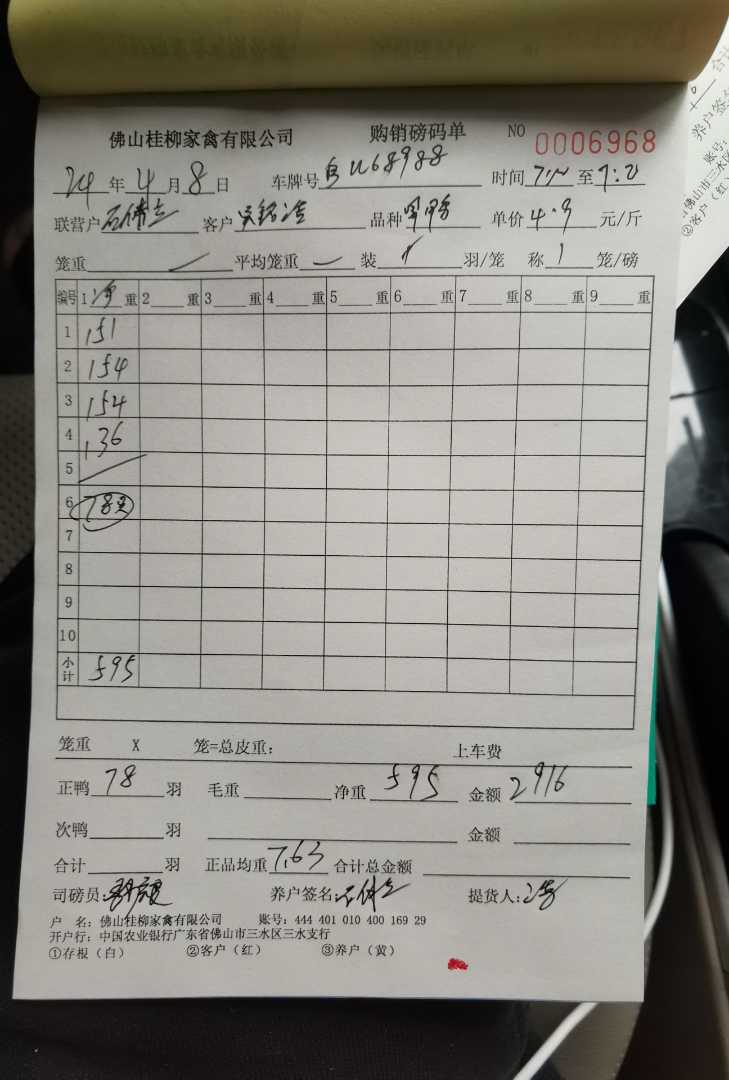 佛山桂柳家禽有限公司 购销磅码单 NO 0006968
24 年 4 月 8 日 车牌号 时间 至 7:20
联营户 客户 品种 单价 4.9 元/斤
笼重 平均笼重 装 羽/笼 称 1 笼/磅
编号 1 净 重 2 重 3 重 4 重 5 重 6 重 7 重 8 重 9 重
1 151
2 154
3 154
4 136
5
6 78只
7
8
9
10
小计 595
笼重 X 笼=总皮重: 上车费
正鸭 78 羽 毛重 净重 595 金额 2916
次鸭 羽 金额
合计 羽 正品均重 7.63 合计总金额
司磅员: 养户签名: 提货人:
户 名: 佛山桂柳家禽有限公司 账号: 444 401 010 400 169 29
开户行: 中国农业银行广东省佛山市三水区三水支行
①存根(白) ②客户(红) ③养户(黄)
合计
养户签
账号:
山市三水区三
②客户(红)